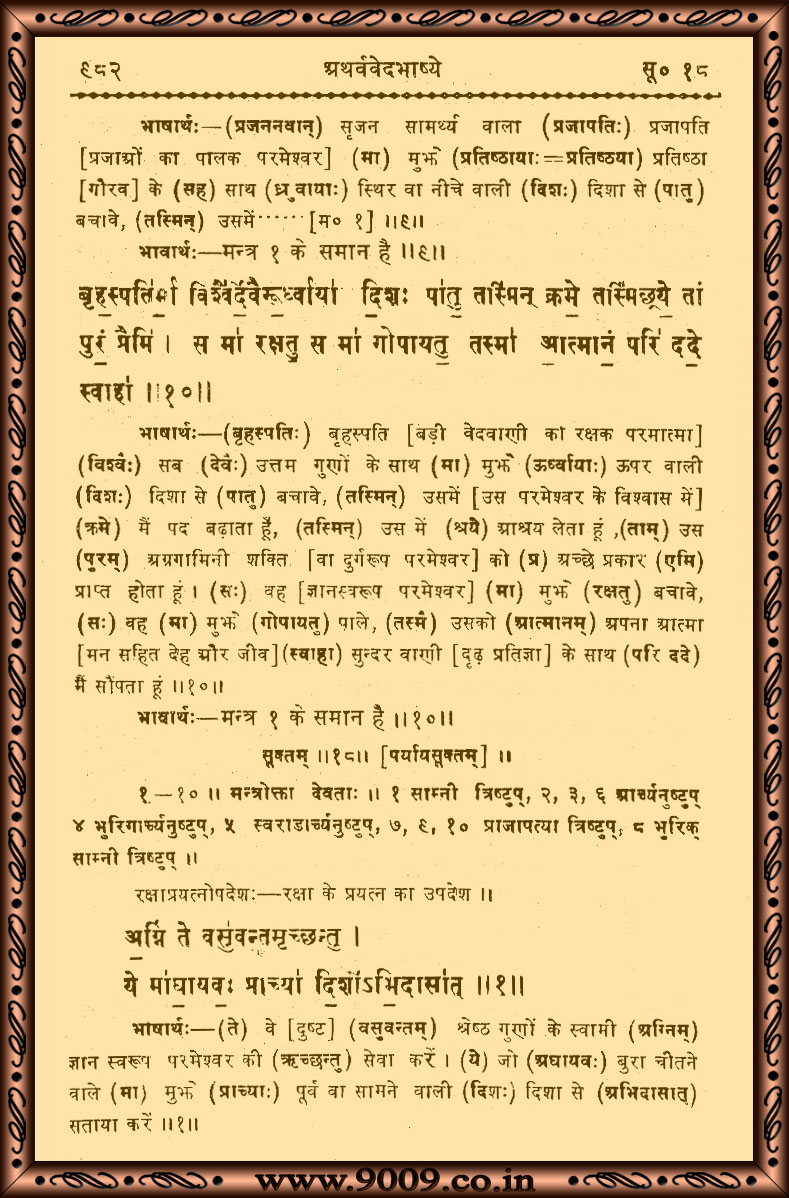 ९८२ अथर्ववेदभाष्ये सू० १८
भाषार्थः—(प्रजननवान्) सृजन सामर्थ्य वाला (प्रजापतिः) प्रजापति
[प्रजाओं का पालक परमेश्वर] (मा) मुझे (प्रतिष्ठायाः=प्रतिष्ठया) प्रतिष्ठा
[गौरव] के (सह) साथ (ध्रुवायाः) स्थिर वा नीचे वाली (दिशः) दिशा से (पातु)
बचावे, (तस्मिन्) उसमें······[म० १] ॥९॥
भावार्थः—मन्त्र १ के समान है ॥९॥
बृह॒स्पति॑र्मा॒ विश्वै॑र्दे॒वैरू॒र्ध्वाया॑ दि॒शः पा॑तु॒ तस्मि॑न् क्रमे॒ तस्मि॑छ्रये॒ तां
पुरं॒ प्रैमि॑ । स मा॑ रक्षतु॒ स मा॑ गोपायतु॒ तस्मा॑ आ॒त्मानं॒ परि॑ ददे॒
स्वाहा॑ ॥१०॥
भाषार्थः—(बृहस्पतिः) बृहस्पति [बड़ी वेदवाणी का रक्षक परमात्मा]
(विश्वैः) सब (देवैः) उत्तम गुणों के साथ (मा) मुझे (ऊर्ध्वायाः) ऊपर वाली
(दिशः) दिशा से (पातु) बचावे, (तस्मिन्) उसमें [उस परमेश्वर के विश्वास में]
(क्रमे) मैं पद बढ़ाता हूँ, (तस्मिन्) उस में (श्रये) आश्रय लेता हूं ,(ताम्) उस
(पुरम्) अग्रगामिनी शक्ति [वा दुर्गरूप परमेश्वर] को (प्र) अच्छे प्रकार (एमि)
प्राप्त होता हूं । (सः) वह [ज्ञानस्वरूप परमेश्वर] (मा) मुझे (रक्षतु) बचावे,
(सः) वह (मा) मुझे (गोपायतु) पाले, (तस्मै) उसको (आत्मानम्) अपना आत्मा
[मन सहित देह और जीव](स्वाहा) सुन्दर वाणी [दृढ़ प्रतिज्ञा] के साथ (परि ददे)
मैं सौंपता हूं ॥१०॥
भावार्थः—मन्त्र १ के समान है ॥१०॥
सूक्तम् ॥१८॥ [पर्यायसूक्तम्] ॥
१—१० ॥ मन्त्रोक्ता देवताः ॥ १ साम्नी त्रिष्टुप्, २, ३, ६ आर्च्यनुष्टुप्
४ भुरिगार्च्यनुष्टुप्, ५ स्वराडार्च्यनुष्टुप्, ७, ९, १० प्राजापत्या त्रिष्टुप्, ८ भुरिक्
साम्नी त्रिष्टुप् ॥
रक्षाप्रयत्नोपदेशः—रक्षा के प्रयत्न का उपदेश ॥
अ॒ग्निं ते वसु॑वन्तमृच्छन्तु॒ ।
ये मा॑घा॒यवः॒ प्राच्या॑ दि॒शो॑ऽभि॒दासा॑त् ॥१॥
भाषार्थः—(ते) वे [दुष्ट] (वसुवन्तम्) श्रेष्ठ गुणों के स्वामी (अग्निम्)
ज्ञान स्वरूप परमेश्वर की (ऋच्छन्तु) सेवा करें । (ये) जो (अघायवः) बुरा चीतने
वाले (मा) मुझे (प्राच्याः) पूर्व वा सामने वाली (दिशः) दिशा से (अभिदासात्)
सताया करें ॥१॥
www.9009.co.in